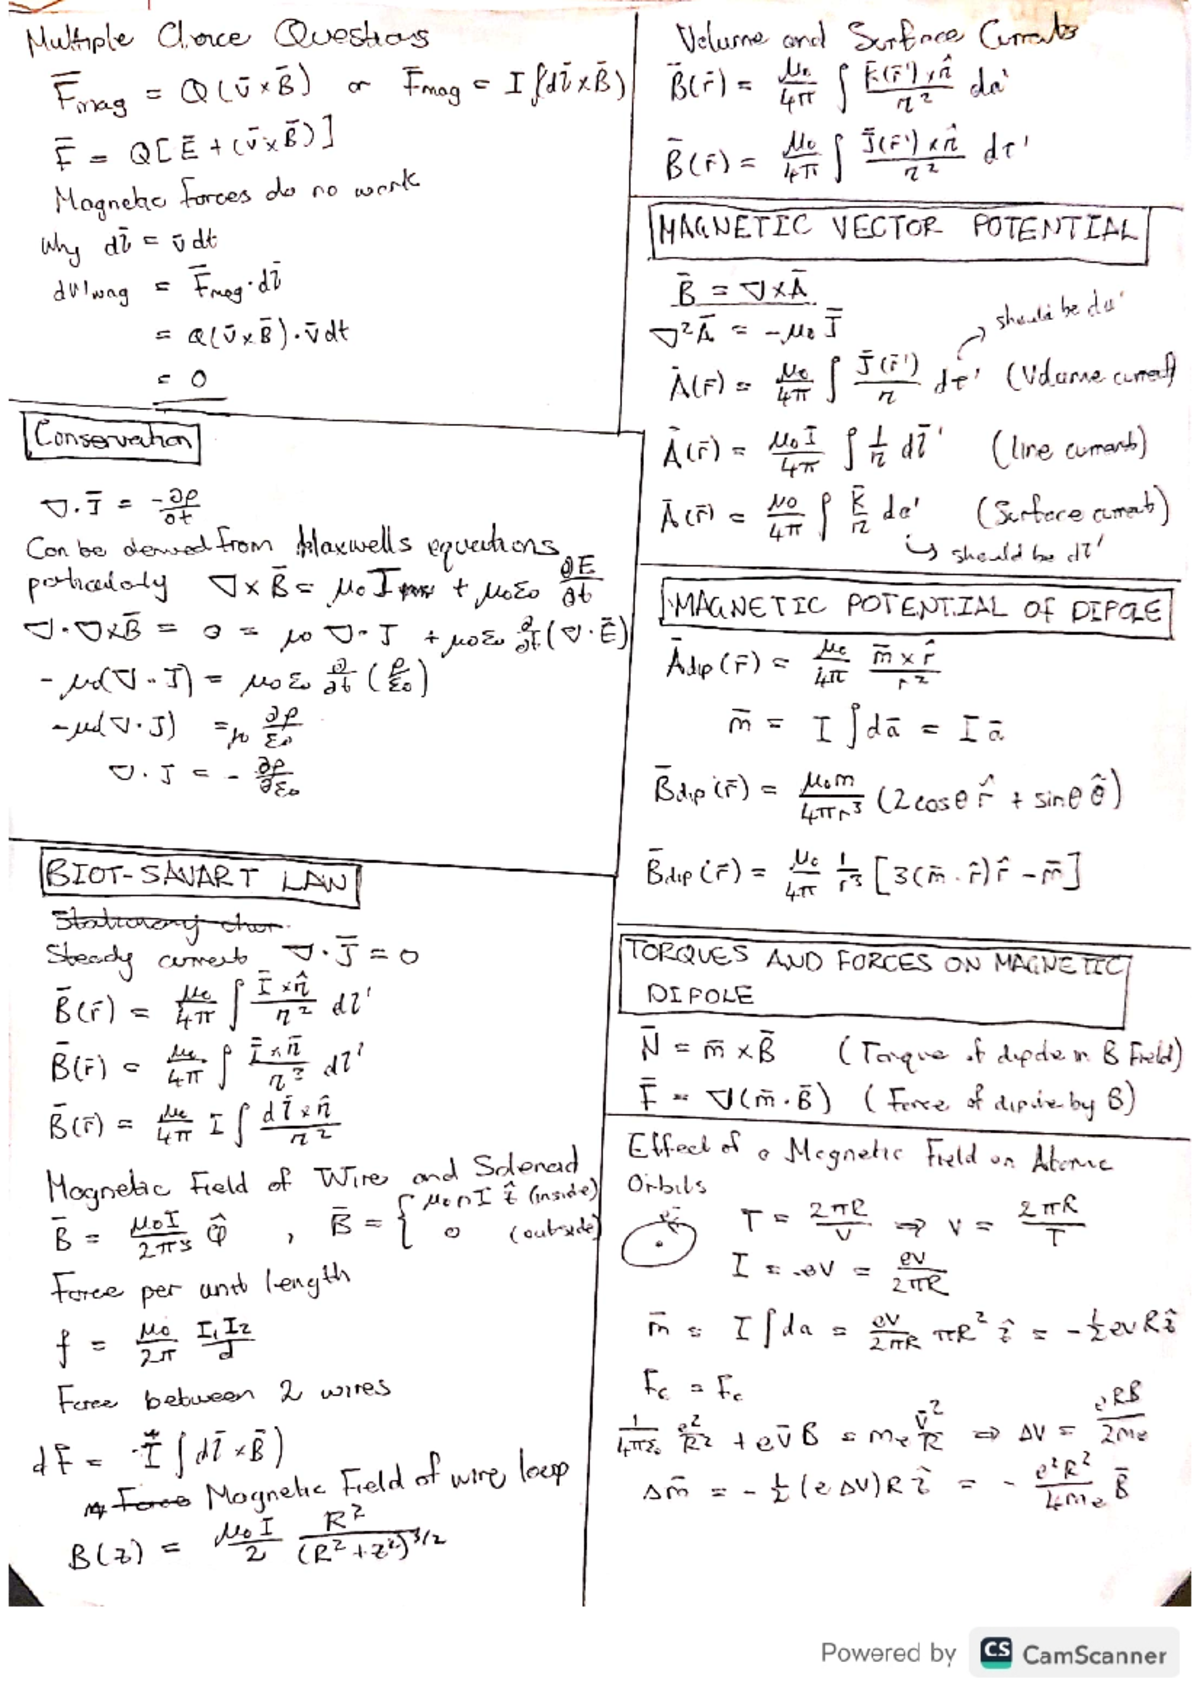 Multiple Choice Questions
F̄mag = Q(v̄ × B̄) or F̄mag = I∫(dl̄ × B̄)
F̄ = Q[Ē + (v̄ × B̄)]
Magnetic forces do no work
Why dl̄ = v̄dt
dWmag = F̄mag · dl̄
= Q(v̄ × B̄) · v̄dt
= 0
Conservation
∇ · J̄ = -∂ρ/∂t
Can be derived from Maxwells equations
particularly ∇ × B̄ = μ0J + μ0ε0 ∂E/∂t
∇ · ∇×B̄ = 0 = μ0 ∇ · J + μ0ε0 ∂/∂t (∇ · Ē)
-μ0(∇ · J) = μ0ε0 ∂/∂t (ρ/ε0)
-μ0(∇ · J) = μ0 ∂ρ/ε0
∇ · J = - ∂ρ/∂ε0
BIOT-SAVART LAW
Steady currents ∇ · J̄ = 0
B̄(r̄) = μ0/4π ∫ Ī × n̂/n² dl'
B̄(r̄) = μ0/4π ∫ Ī × n̄/n³ dl'
B̄(r̄) = μ0/4π I ∫ dl̄ × n̂/n²
Magnetic Field of Wire and Solenoid
B̄ = μ0I/2πs φ̂ , B̄ = { μ0nI ẑ (inside)
0 (outside)
Force per unit length
f = μ0/2π I1I2/d
Force between 2 wires
dF = I∫(dl̄ × B̄)
Force Magnetic Field of wire loop
B(z) = μ0I/2 R²/(R² + z²)^3/2
Volume and Surface Currents
B̄(r̄) = μ0/4π ∫ K̄(r̄') × n̂/n² da'
B̄(r̄) = μ0/4π ∫ J̄(r̄') × n̂/n² dτ'
MAGNETIC VECTOR POTENTIAL
B̄ = ∇ × Ā
∇²Ā = -μ0 J̄
should be da'
Ā(r̄) = μ0/4π ∫ J̄(r̄')/n dτ' (Volume current)
Ā(r̄) = μ0I/4π ∫ 1/n dl̄' (line currents)
Ā(r̄) = μ0/4π ∫ K̄/n da' (Surface currents)
should be dτ'
MAGNETIC POTENTIAL OF DIPOLE
Ādip(r̄) = μ0/4π m̄ × r̂/r²
m̄ = I ∫ dā = I ā
B̄dip(r̄) = μ0m/4πr³ (2cosθ r̂ + sinθ θ̂)
B̄dip(r̄) = μ0/4π 1/r³ [3(m̄ · r̂)r̂ - m̄]
TORQUES AND FORCES ON MAGNETIC
DIPOLE
N̄ = m̄ × B̄ (Torque of dipole in B Field)
F̄ = ∇(m̄ · B̄) (Force of dipole by B)
Effect of a Magnetic Field on Atomic
Orbits
T = 2πR/v ⇒ v = 2πR/T
I = ev/2πR
m̄ = I∫da = ev/2πR πR² ẑ = -½evRẑ
Fc = Fc
1/4πε0 e²/R² + ev̄B = me v̄²/R ⇒ Δv = eRB/2me
Δm̄ = -½(eΔv)Rẑ = - e²R²/4me B̄
Powered by CS CamScanner